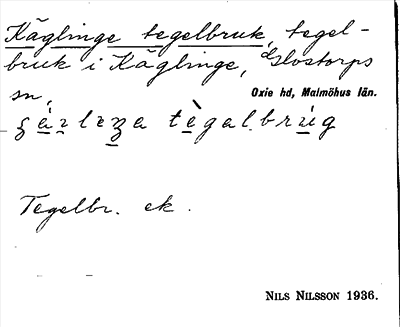 Käglinge tegelbruk, tegel-
bruk i Käglinge, Glostorps
sn,
Oxie hd, Malmöhus län.
tègalbrúg
Tegelbr. ek.
NILS NILSSON 1936.